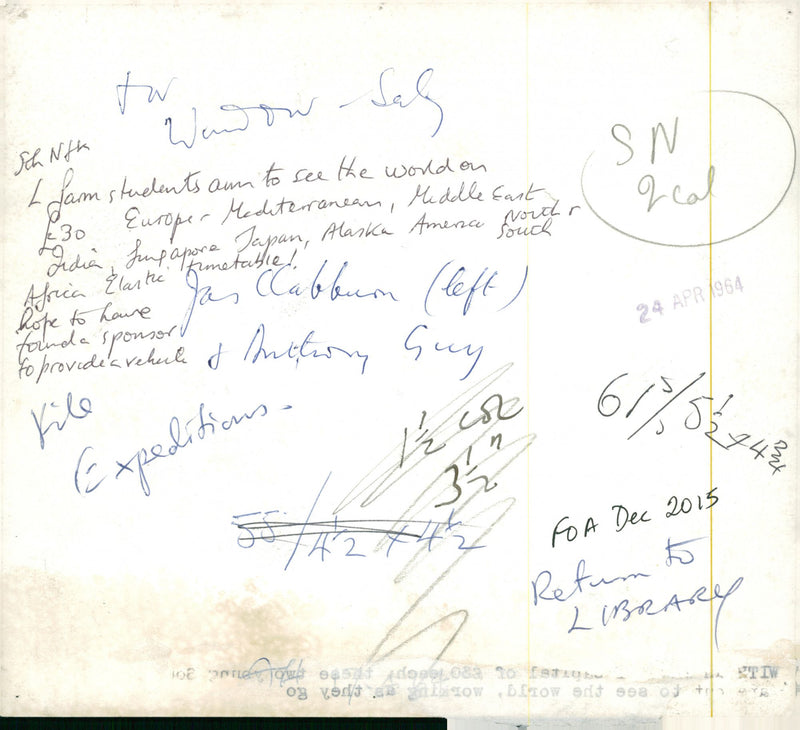 for
Window - Sat
Sth Nfk
farm students aim to see the world on
£30 Europe - Mediterranean, Middle East
India, Singapore Japan, Alaska America North &
South
Africa Elastic timetable!
hope to have
found a sponsor
to provide a vehicle
Jas Clabburn (left)
& Anthony Guy
File
Expeditions -
SN
2 col
24 APR 1964
61 5/5 5½ x 4¾
1½ col
3½"
55/4½ x 4½
FOA Dec 2015
Return to
LIBRARY
WITH capital of £30 each, these two young Sou
are out to see the world, working as they go